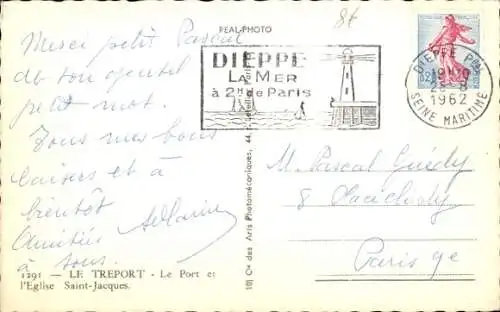 Merci petit Pascal
de ton gentil
petit mot.
Tous mes bons
baisers et à
bientôt
Amitiés
à tous.
1291 — LE TREPORT - Le Port et
l'Eglise Saint-Jacques.
REAL-PHOTO
86
DIEPPE
LA MER
à 2H de Paris
DIEPPE PAL
19H30
1962
SEINE MARITIME
Cie des Arts Photomécaniques, 44,
M. Pascal Guédy
8
Paris 9e